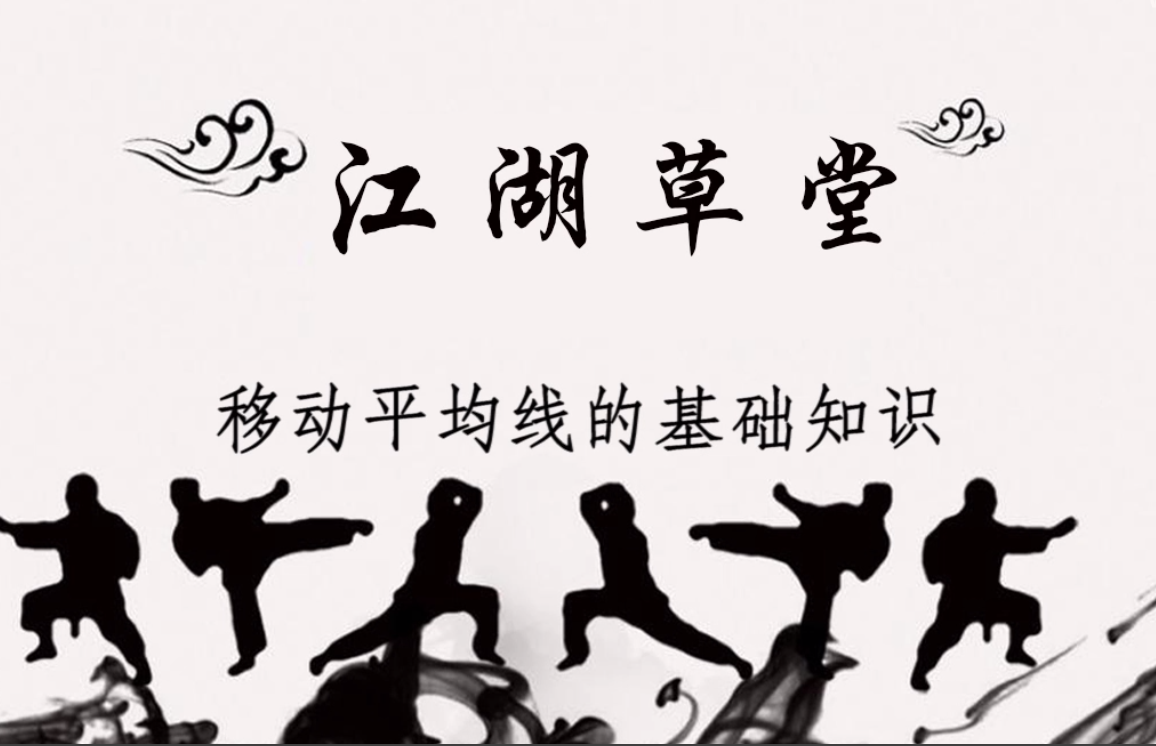 江湖草堂
移动平均线的基础知识